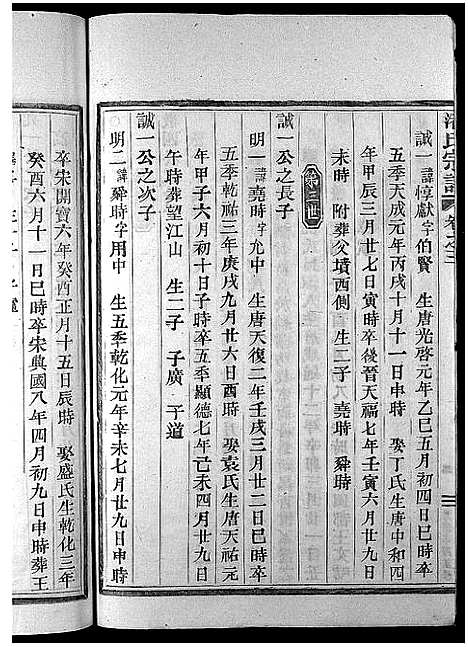 氏宗譜
誠一諱惇獻字伯賢 生唐光啓元年乙巳五月初四日巳時卒
五季天成元年丙戌十月十一日申時 娶丁氏生唐中和四
年甲辰三月廿七日寅時卒後晉天福七年壬寅六月廿八日
未時 附葬父墳西側 生二子 堯時 舜時
第二世
誠一公之長子
明一諱堯時字允中 生唐天復二年壬戌三月廿二日巳時卒
五季乾祐三年庚戌九月廿六日酉時 娶袁氏生唐天祐元
年甲子六月初十日子時卒五季顯德七年己未四月廿九日
午時葬望江山 生二子 子廣 子道
誠一公之次子
明二諱舜時字用中 生五季乾化元年辛未七月廿九日申時
卒宋開寶六年癸酉正月十五日辰時 娶盛氏生乾化三年
癸酉六月十一日巳時卒宋興國八年四月初九日申時葬王